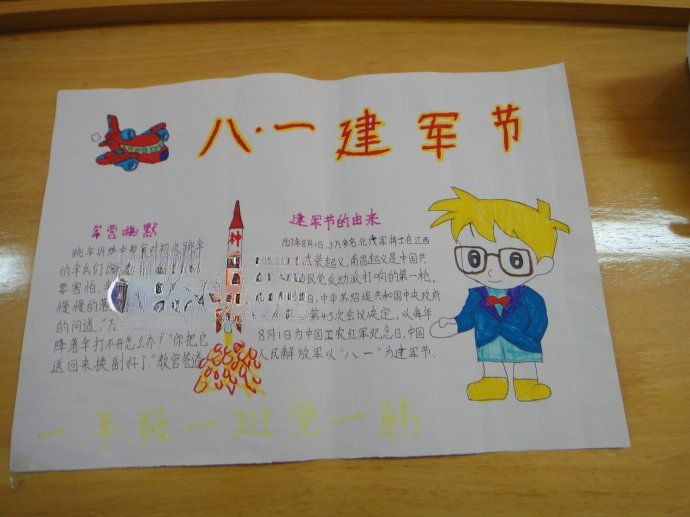 八·一建军节
军营幽默
跳伞训练中教官对初次跳伞
的伞兵们
要害怕
慢慢的
的问道："万
降落伞打不开怎么办？""你把它
送回来换副好了。"教官答道
神
建军节的由来
1927年8月1日,3万多名北伐军将士在江西
武装起义,南昌起义是中国共
国民党反动派打响的第一枪.
日,中华苏维埃共和国中央政府
第45次会议决定,以每年
8月1日为中国工农红军纪念日,中国
人民解放军以"八一"为建军节.
一年级一班党一韩